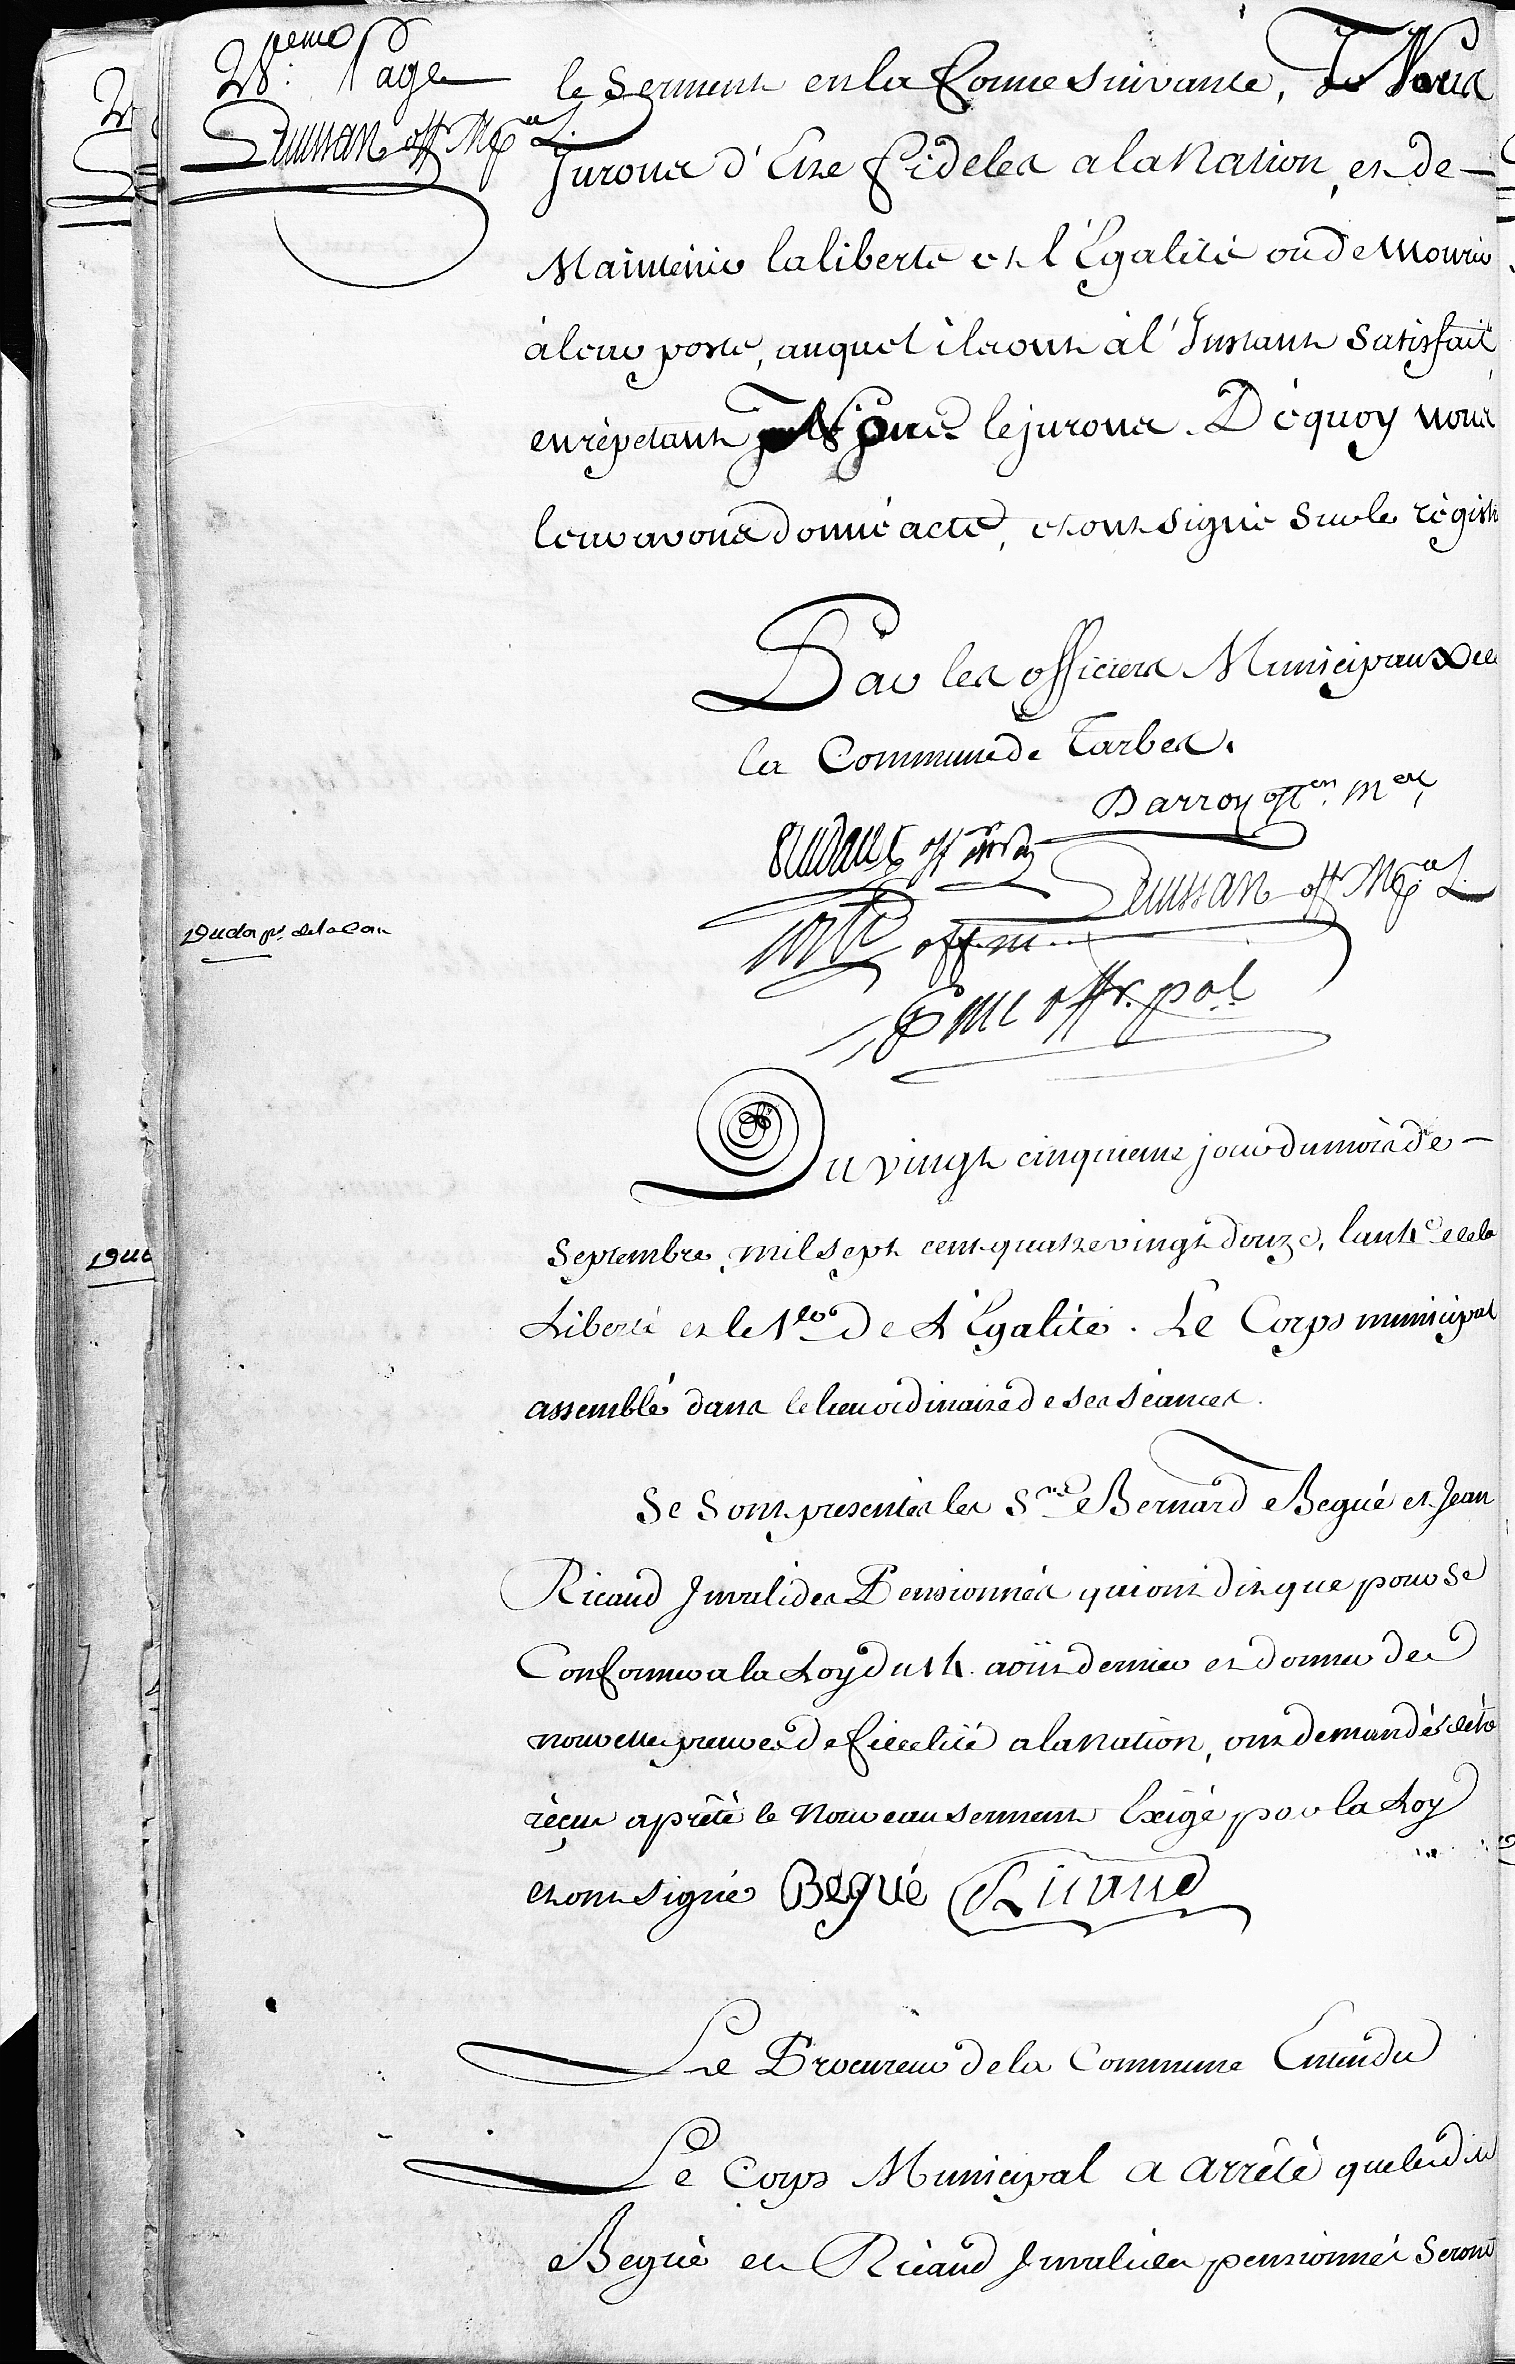 28.eme Page
off Mpal
le serment en la forme suivante, Nous
Jurons d'Etre fideles a la Nation, et de -
Maintenir la liberté et l'Egalité ou de Mourir
à leur poste, auquel ils ont à l'Instant satisfait,
en répetant Nous le jurons. Dèquoy nous
leur avons donné acte, et ont signé sur le règist
Par les officiers Municipaux de
la Commune de Tarbes.
Darroy offer. mal
off
off Mpal
off. m.
off. pol
Du vingt cinquieme jour du mois de -
Septembre, mil sept cent quatre vingt douze, l'an 4e de la
Liberté et le 1er de L'Egalité. Le Corps municipal
assemblé dans le lieu ordinaire de ses séances.
Se sont presentés les Srs Bernard Begué et Jean
Ricaud Invalides Pensionnés qui ont dit que pour se
Conformer a la Loy du 14. août dernier et donner de
nouvelles preuves de fidelité a la Nation, ont demandé d'étre
reçu a prêté le Nouveau serment Exigé par la Loy
et ont signé Begué Ricaud
Le Procureur de la Commune Entendu
Le Corps Municipal a arrêté que lesdits
Begué et Ricaud Invalides pensionnés seront